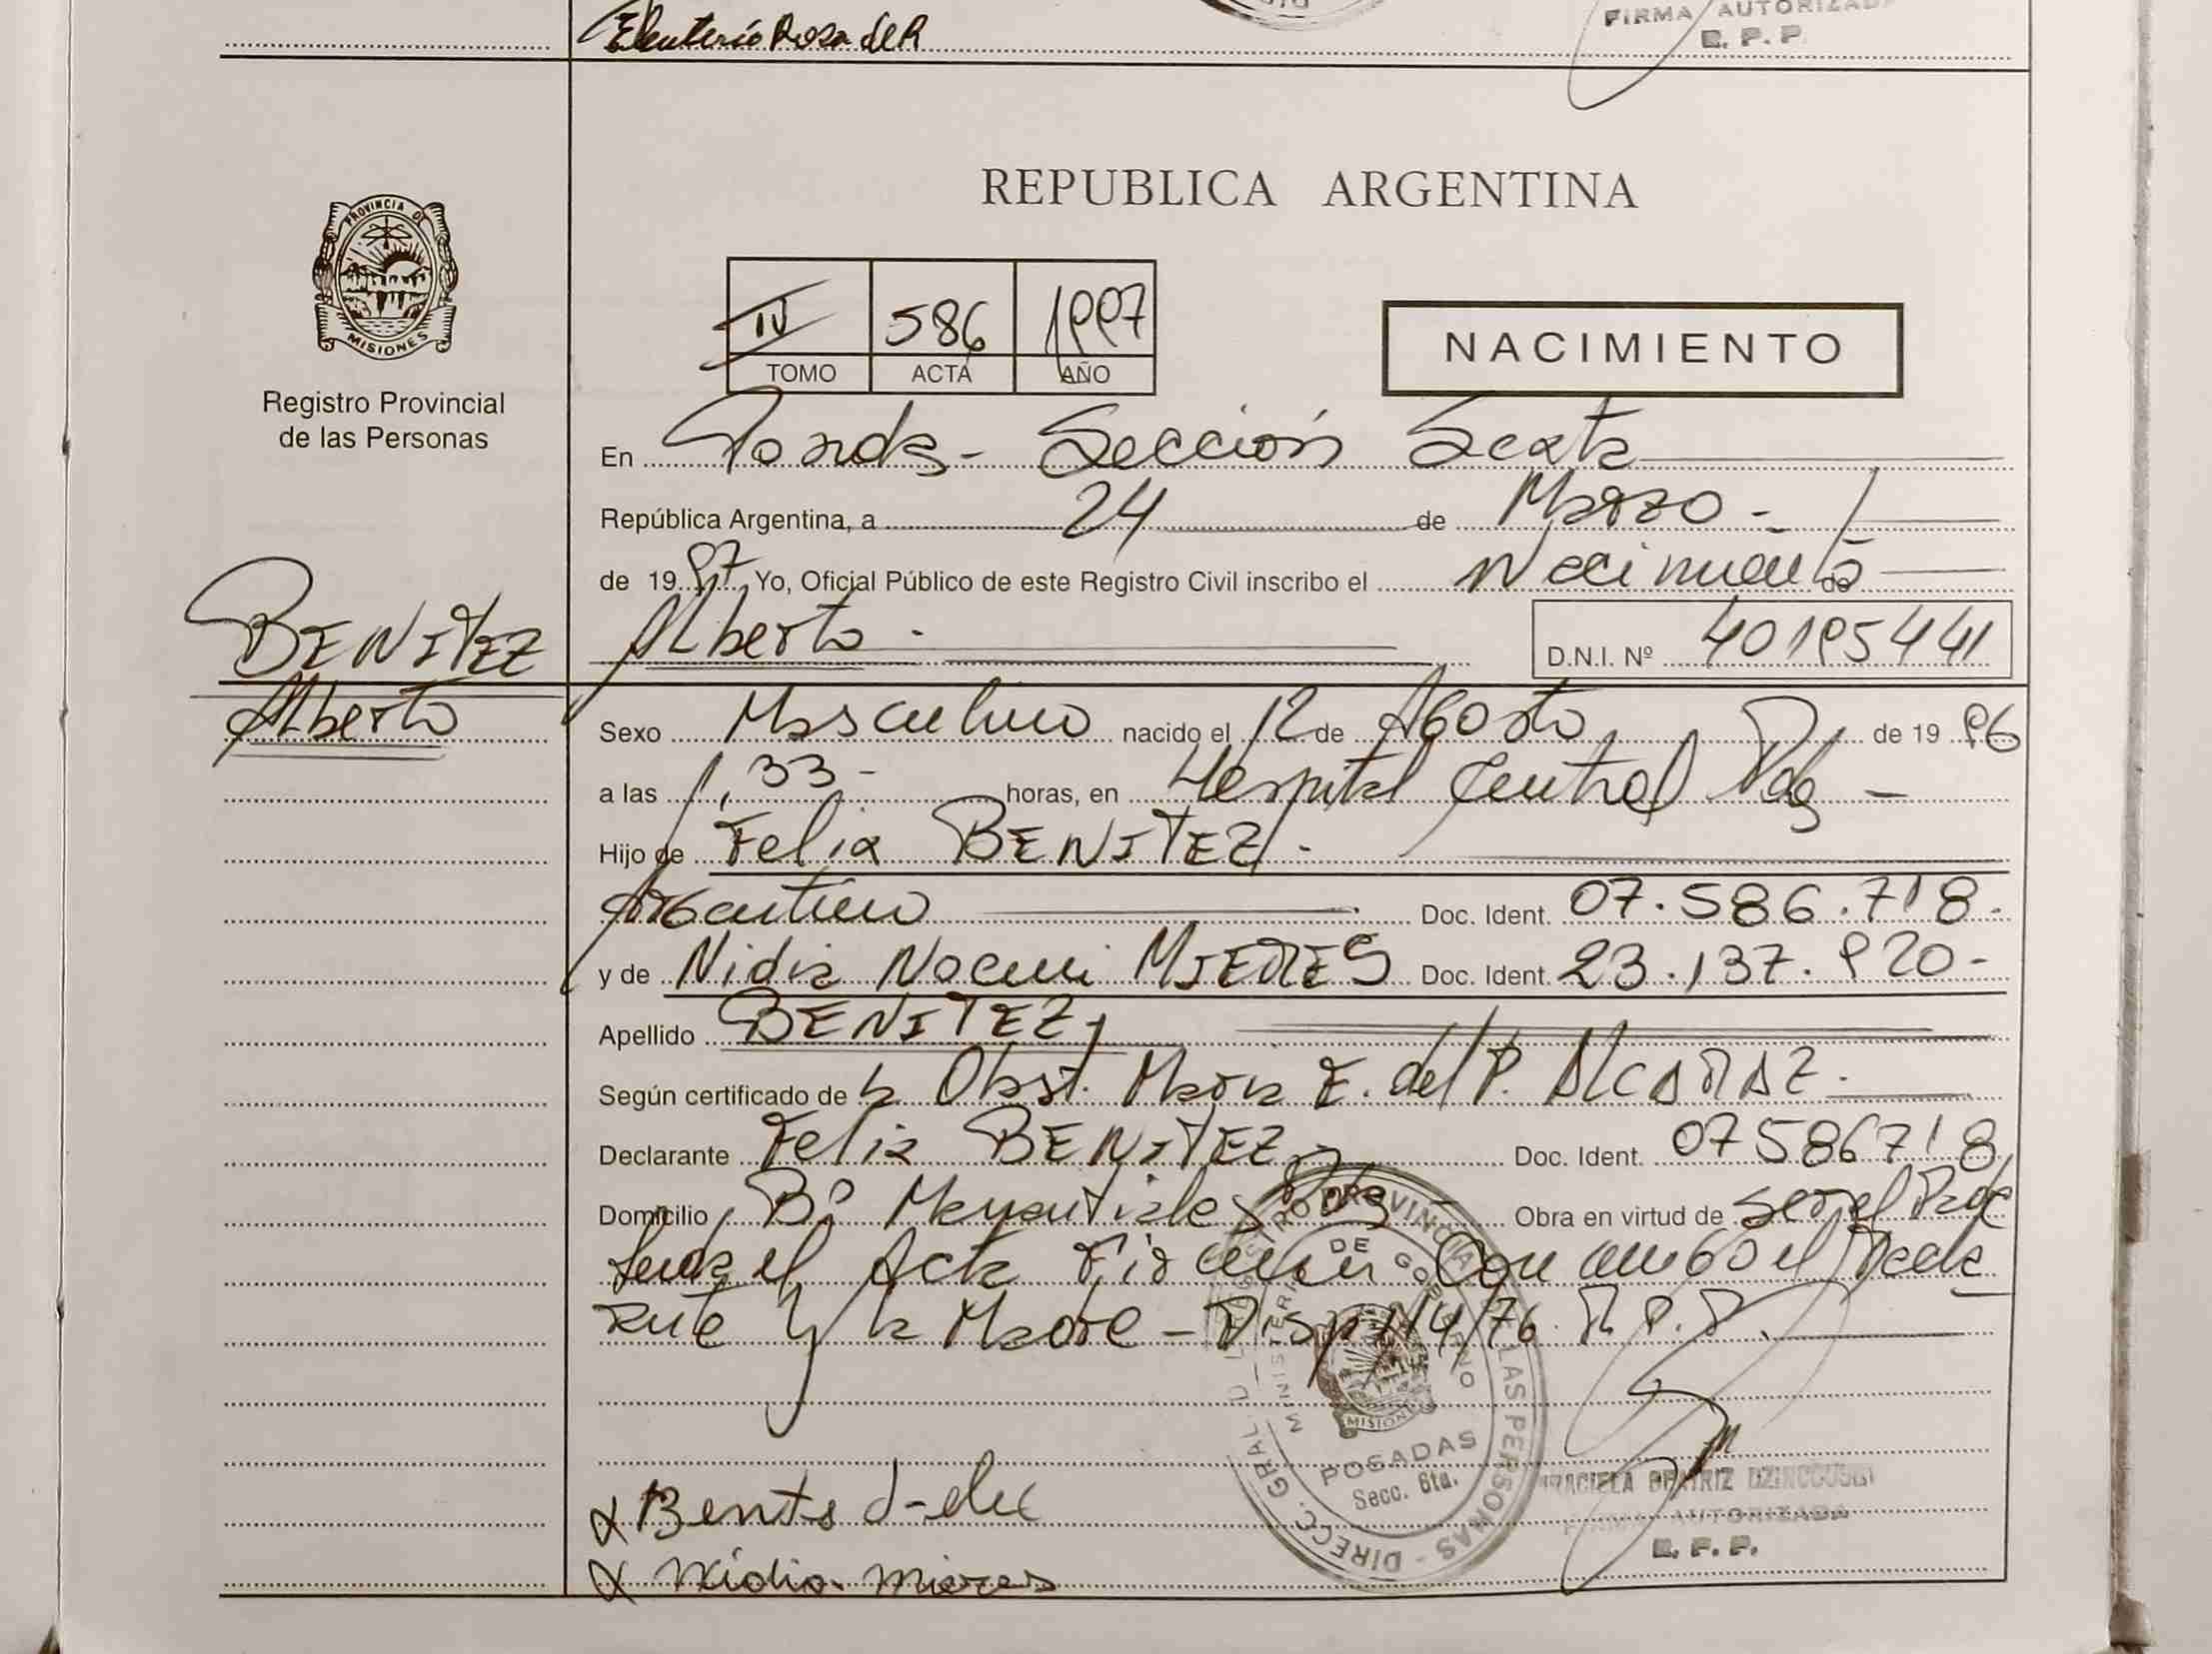 Eleuterio Rosa del R
FIRMA AUTORIZADA
R. P. P.
PROVINCIA DE
MISIONES
Registro Provincial
de las Personas
REPUBLICA ARGENTINA
IV 586 1997
TOMO ACTA AÑO
NACIMIENTO
En Posadas - Sección Sexta
República Argentina, a 24 de Marzo -
de 1997 Yo, Oficial Público de este Registro Civil inscribo el Nacimiento de
BENITEZ
Alberto
Alberto.
D.N.I. Nº 40195441
Sexo Masculino nacido el 12 de Agosto de 1996
a las 1,33- horas, en Hospital Central Pdas -
Hijo de Felix BENITEZ.
Argentino Doc. Ident. 07.586.718.
y de Nidia Noemi MIERES Doc. Ident. 23.137.920-
Apellido BENITEZ
Según certificado de la Obst. Maria E. del P. ALCARAZ.
Declarante Felix BENITEZ Doc. Ident. 07586718
Domicilio Bº Manantiales Pdas - Obra en virtud de ser el Padre
el Acta Firman Conmigo el Decla
rante y la Madre - Disp 114/76 R.P.P.
DIRECC. GRAL DEL REGISTRO PROVINCIAL DE LAS PERSONAS
MINISTERIO DE GOBIERNO
MISIONES
POSADAS
Secc. 6ta.
GRACIELA BEATRIZ
FIRMA AUTORIZADA
R. P. P.
X
X Nidia Mieres